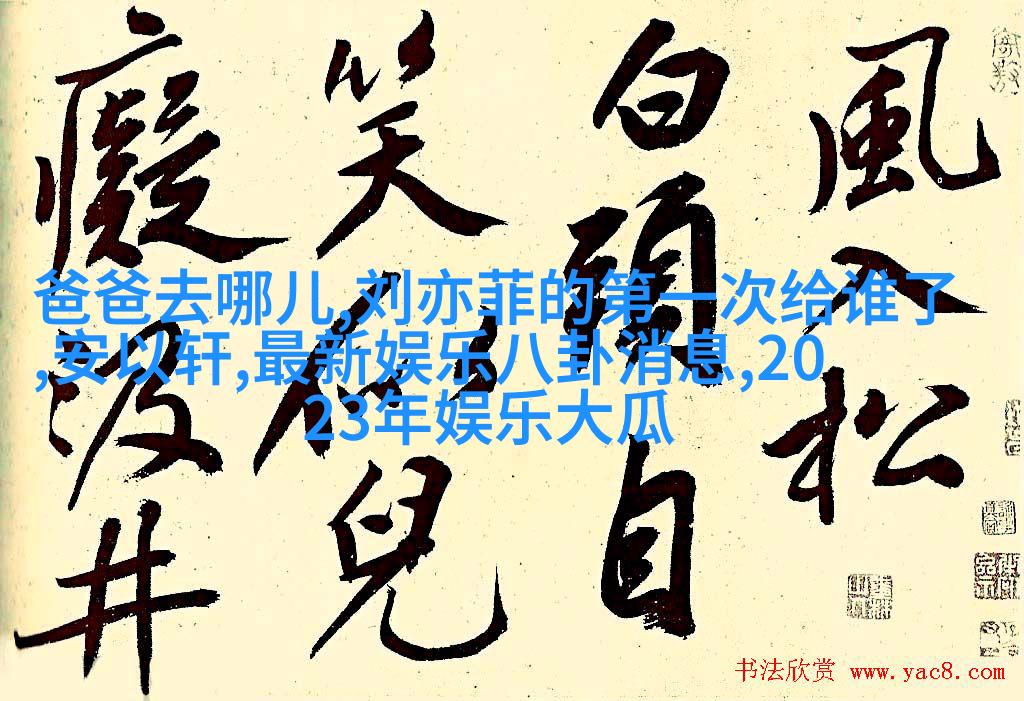 風入松
白頭自
笑似兒
癡汲井
爸爸去哪儿,刘亦菲的第一次给谁了
,安以轩,最新娱乐八卦消息,20
23年娱乐大瓜
书法欣赏 www.yac8.com